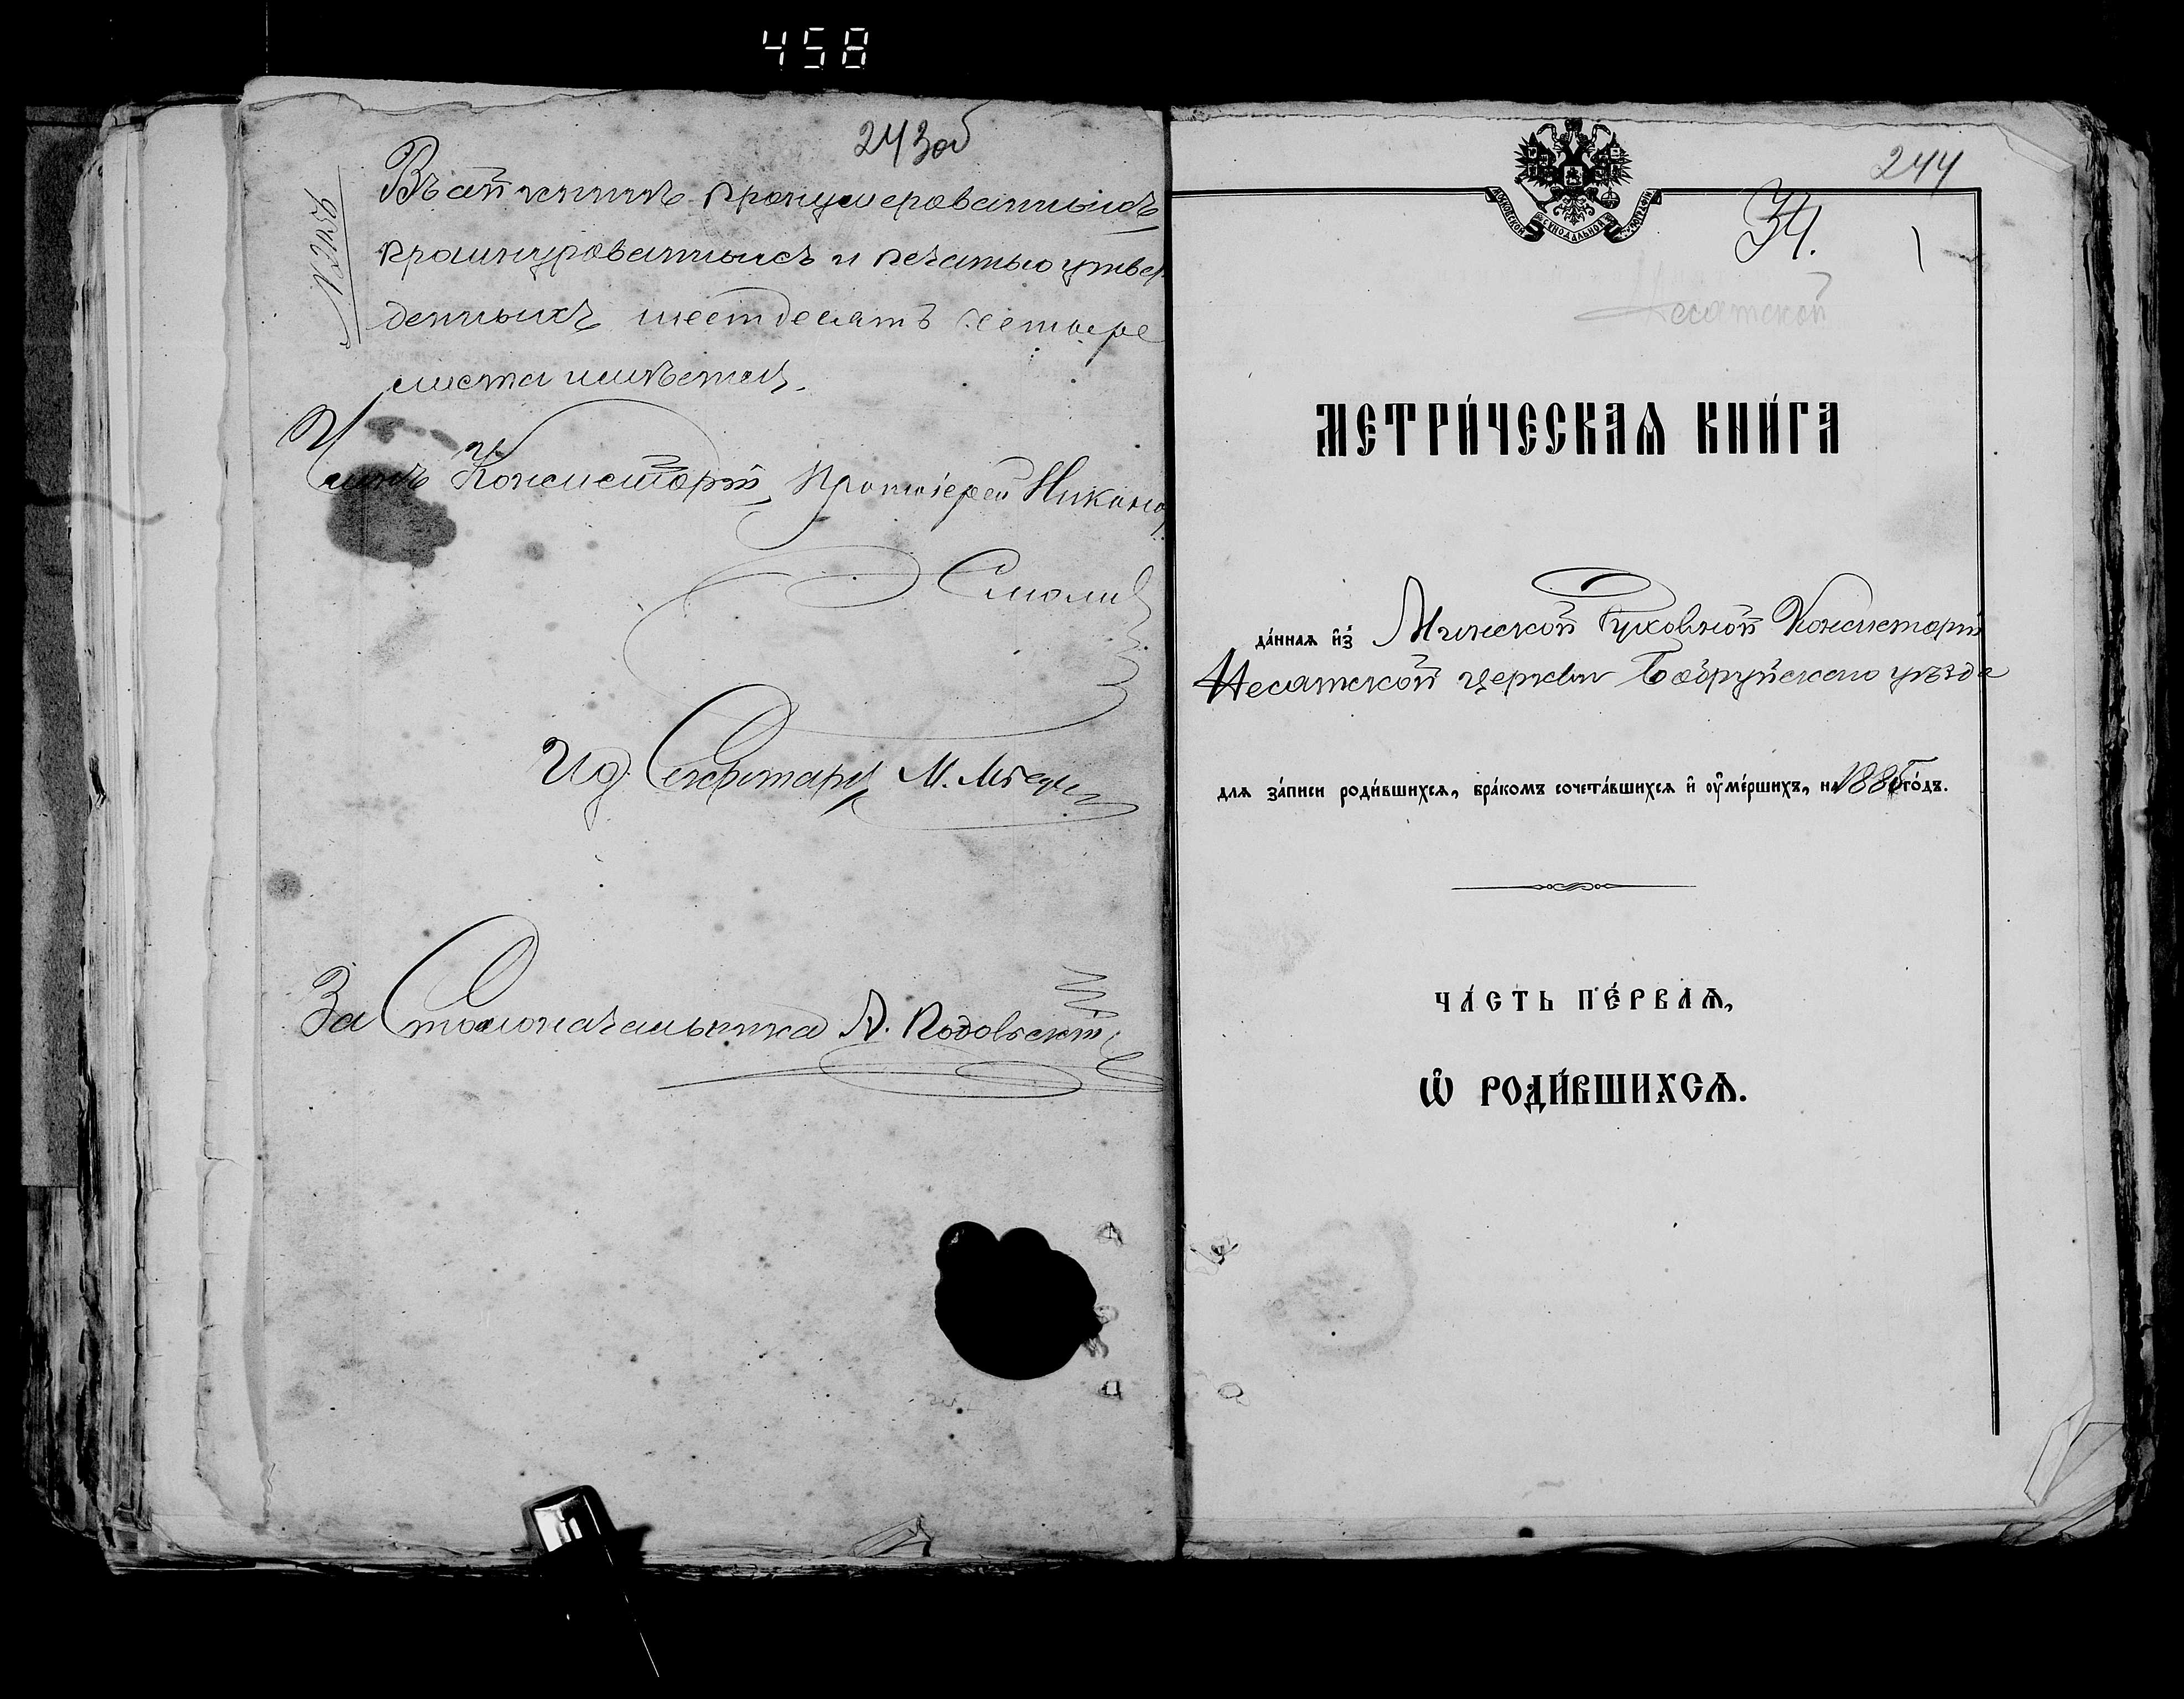 458
243 об
Въ сей книгѣ пронумерованныхъ
прошнурованныхъ и печатью утвер
денныхъ шестдесятъ четыре
листа имѣется.
Членъ Консисторіи, Протоіерей Никано
Смолич
Ид. Секретаря М.
За Столоначальника А.
244
34.
1
Несятской
МОСКОВСКОЙ СѴНОДАЛЬНОЙ ТИПОГРАФІИ
МЕТРИ́ЧЕСКАѦ КНИ́ГА
да́ннаѧ и҆з̾ Минской Духовной Консисторіи
Несятской церкви Бобруйскаго уѣзда
длѧ за́писи роди́вшихсѧ, бра́комъ сочета́вшихсѧ и҆ ᲂу҆ме́ршихъ, на 1885 го́дъ.
ЧА́СТЬ ПЕ́РВАѦ,
Ѡ҆ РОДИ́ВШИХСѦ.